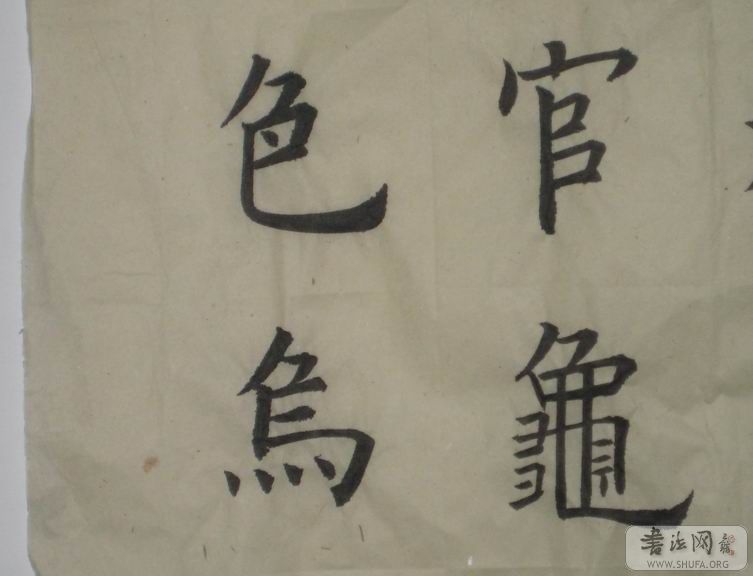 官龜
色烏
书法网
WWW.SHUFA.ORG